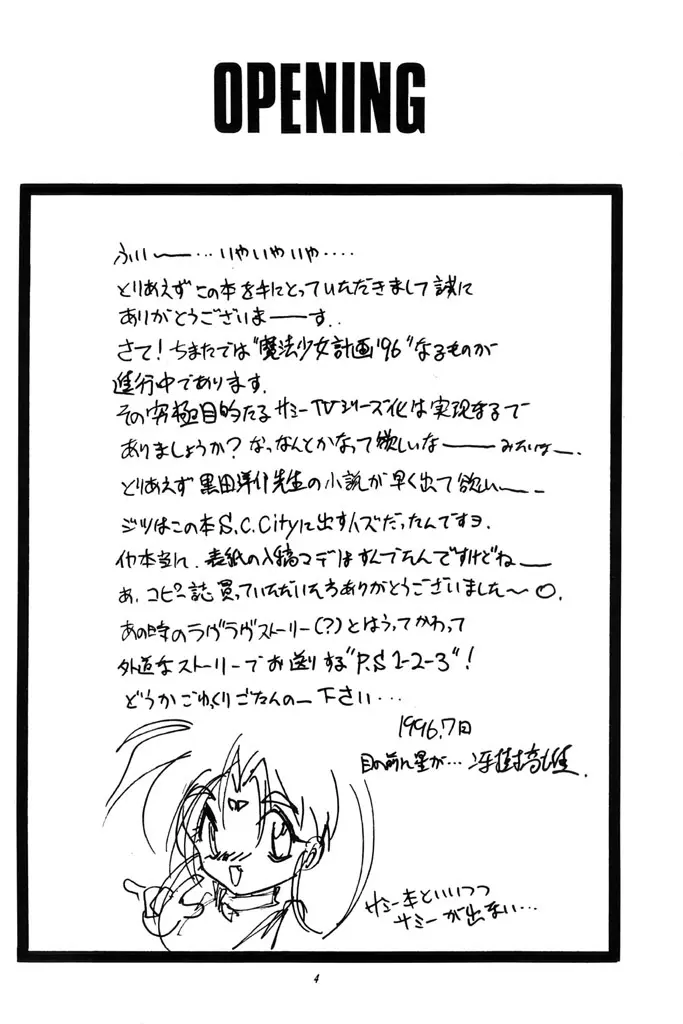 OPENING
ふぃ〜〜…いやいやいや‥‥
とりあえずこの本を手にとっていただきまして誠に
ありがとうございまーーす‥
さて!ちまたでは"魔法少女計画'96"なるものが
進行中であります.
その究極目的たるサミーTVシリーズ化は実現するで
ありましょうか?なっなんとかなって欲しいな〜〜みたいな〜.
とりあえず黒田洋介先生の小説が早く出て欲しい〜〜
ジツはこの本S.C.Cityに出すハズだったんですヨ.
イヤ本当に.表紙の入稿マデはすんでたんですけどね〜
あ.コピー誌買っていただいた方ありがとうございました〜○.
あの時のラヴラヴストーリー(?)とはうってかわって
外道なストーリーでお送りする"P.S 1-2-3"!
どうかごゆっくりごたんのー下さい…
1996.7日
目の前に星が…
サミー本といいつつ
サミーが出ない…
4